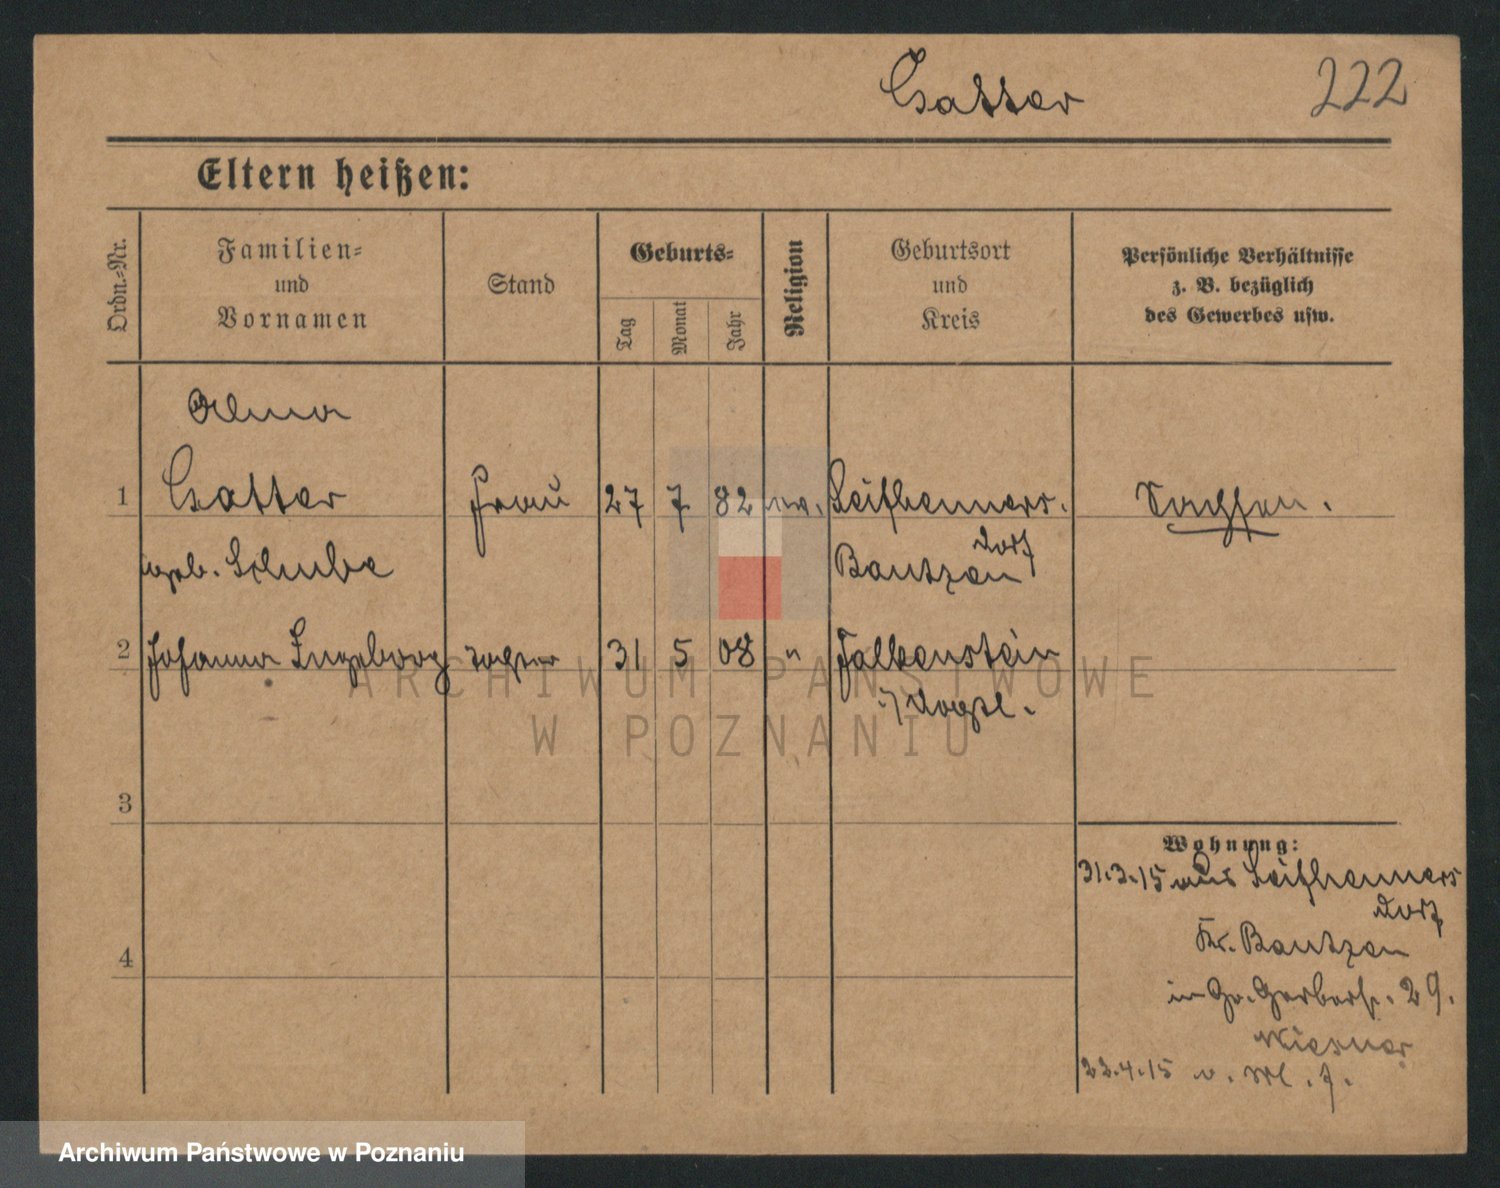 Gatter
222
Eltern heißen:
Ordn.-Nr.
Familien-
und
Vornamen
Stand
Geburts-
Tag
Monat
Jahr
Religion
Geburtsort
und
Kreis
Persönliche Verhältnisse
z. B. bezüglich
des Gewerbes usw.
Alma
1 Gatter Frau 27 7 82 ev. Seifhenners-
dorf
geb. Schube Bautzen
Sachsen.
2 Johanna Ingeborg Tochter 31 5 08 " Falkenstein
i/Vogtl.
3
4
Wohnung:
31.3.15 aus Seifhenners
dorf
Kr. Bautzen
in Gr. Gerberstr. 29.
Wiesner
22.4.15 v.
ARCHIWUM PAŃSTWOWE
W POZNANIU
Archiwum Państwowe w Poznaniu